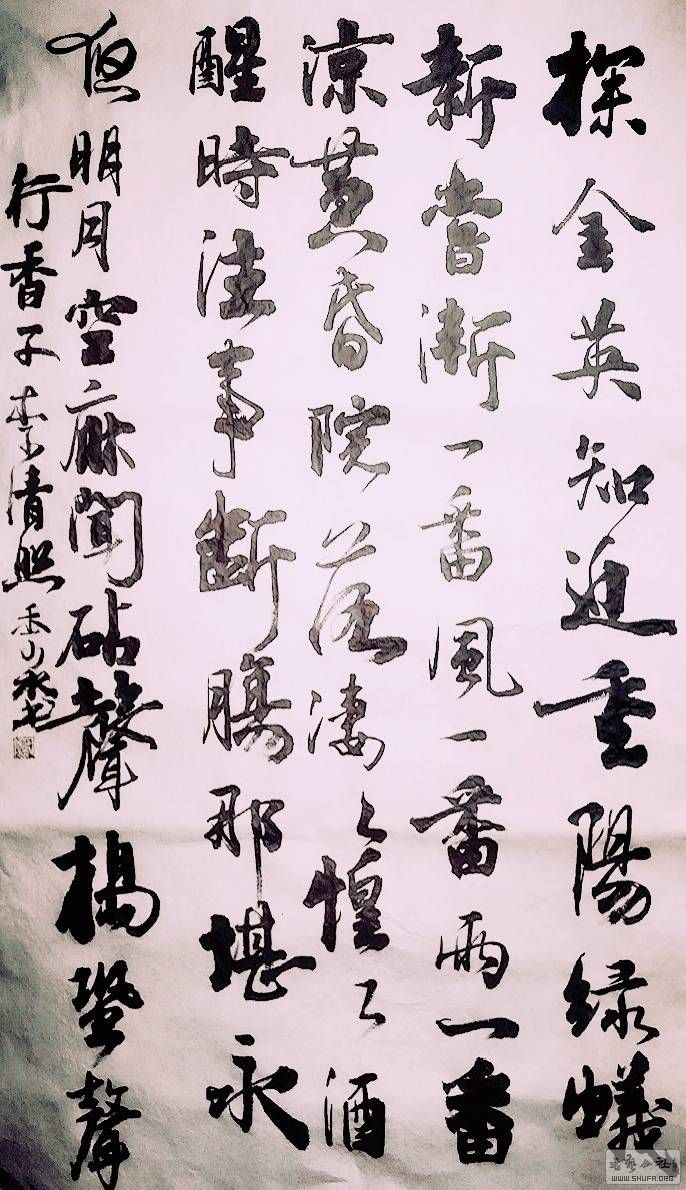 探金英知近重陽緑蟻
新嘗漸一番風一番雨一番
涼黄昏院落淒々惶々酒
醒時往事斷腸那堪永
夜明月空床聞砧聲搗蛩聲
行香子 李清照
书艺公社
WWW.SHUFA.ORG